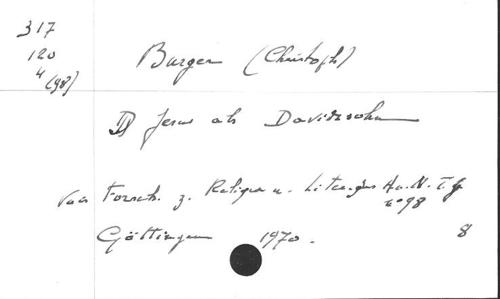 317
120
4 (98)
Burger (Christoph)
Jesus als Davidssohn
Forsch. z. Religion u. Liter. des A. u. N. T.
n° 98
Göttingen 1970. 8